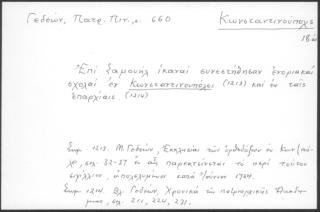 Γεδεών, Πατρ. Πιν., σ. 660
Κωνσταντινούπολις
18
Ἐπὶ Σαμουὴλ ἱκαναὶ συνεστήθησαν ἐνοριακαὶ
σχολαὶ ἐν Κωνσταντινουπόλει (1213) καὶ ἐν ταῖς
ἐπαρχίαις (1214)
Σημ. 1213. Μ. Γεδεών, Ἐκκλησίαι τῶν ὀρθοδόξων ἐν Κων/πό-
λει, σελ. 32-37 ἐν αἷς παρεκτίνεται τὸ περὶ τούτου
σιγίλλιον, ἀπολυμένον κατὰ Ἰούνιον 1764.
Σημ. 1214. Βλ. Γεδεών, Χρονικὰ τῆς πατριαρχικῆς Ἀκαδη-
μίας, σελ. 211, 224, 231.